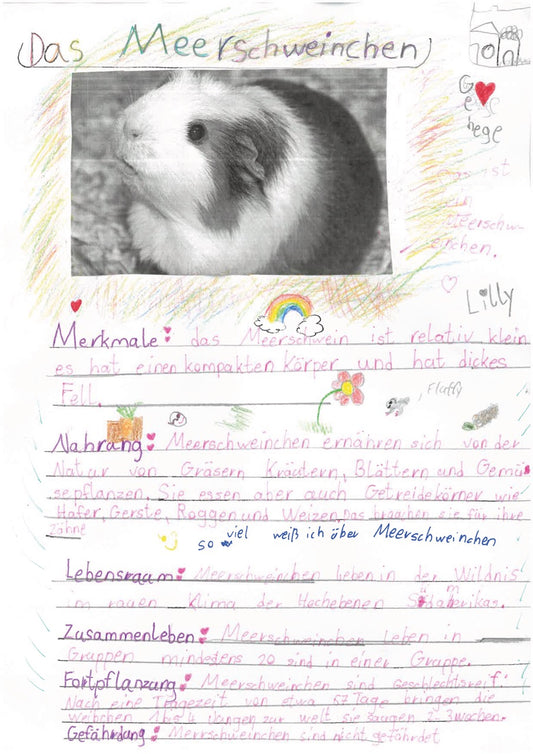 Das Meerschweinchen
Ge
hege
ist
ein
Meerschw-
einchen.
Lilly
Merkmale: das Meerschwein ist relativ klein
es hat einen kompakten Körper und hat dickes
Fell.
Fluffy
Nahrang: Meerschweinchen ernähren sich von der
Natur von Gräsern Kräutern, Blättern und Gemü
sepflanzen. Sie essen aber auch Getreidekörner wie
Hafer, Gerste, Roggen und Weizen. Das brauchen sie für ihre
zähne
so viel weiß ich über Meerschweinchen
Lebensraum: Meerschweinchen leben in der Wildnis
im rauen Klima der Hochebenen Südamerikas.
Zusammenleben: Meerschweinchen Leben in
Gruppen mindedens 20 sind in einer Gruppe.
Fortpflanzung: Meerschweinchen sind Geschlechtsreif:
Nach eine Tragezeit von etwa 57 Tage bringen die
weibchen 1 bis 4 Jungen zur welt sie saugen 2-3 wochen.
Gefährdang: Meerschweinchen sind nicht gefährdet